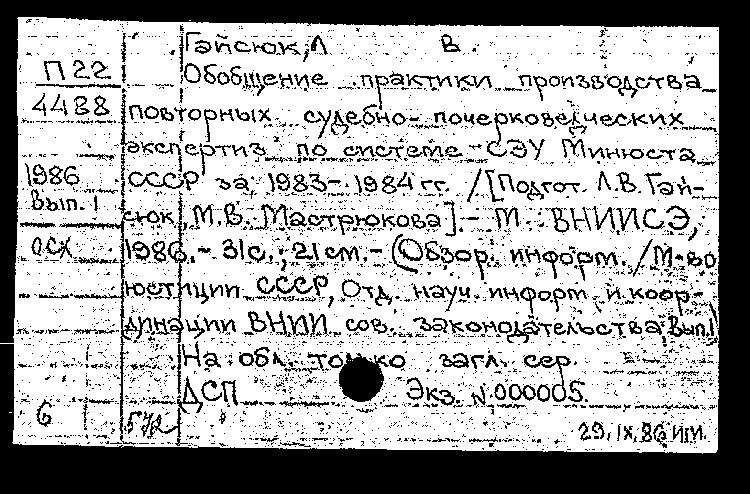 Гайсюк, Л В.
П22 Обобщение практики производства
4488 повторных судебно-почерковедческих
экспертиз по системе СЭУ Минюста
1986 СССР за 1983-1984 гг. /[Подгот. Л.В. Гай-
Вып. 1 сюк, М.В. Мастрюкова].- М.: ВНИИСЭ,
осх 1986.- 31с.; 21 см.- (Обзор. информ. /М-во
юстиции СССР, Отд. науч. информ. и коор-
динации ВНИИ сов. законодательства; Вып.1)
На обл. только загл. сер.
ДСП Экз. N 000005.
6 572
29.IX.86 ИМ.